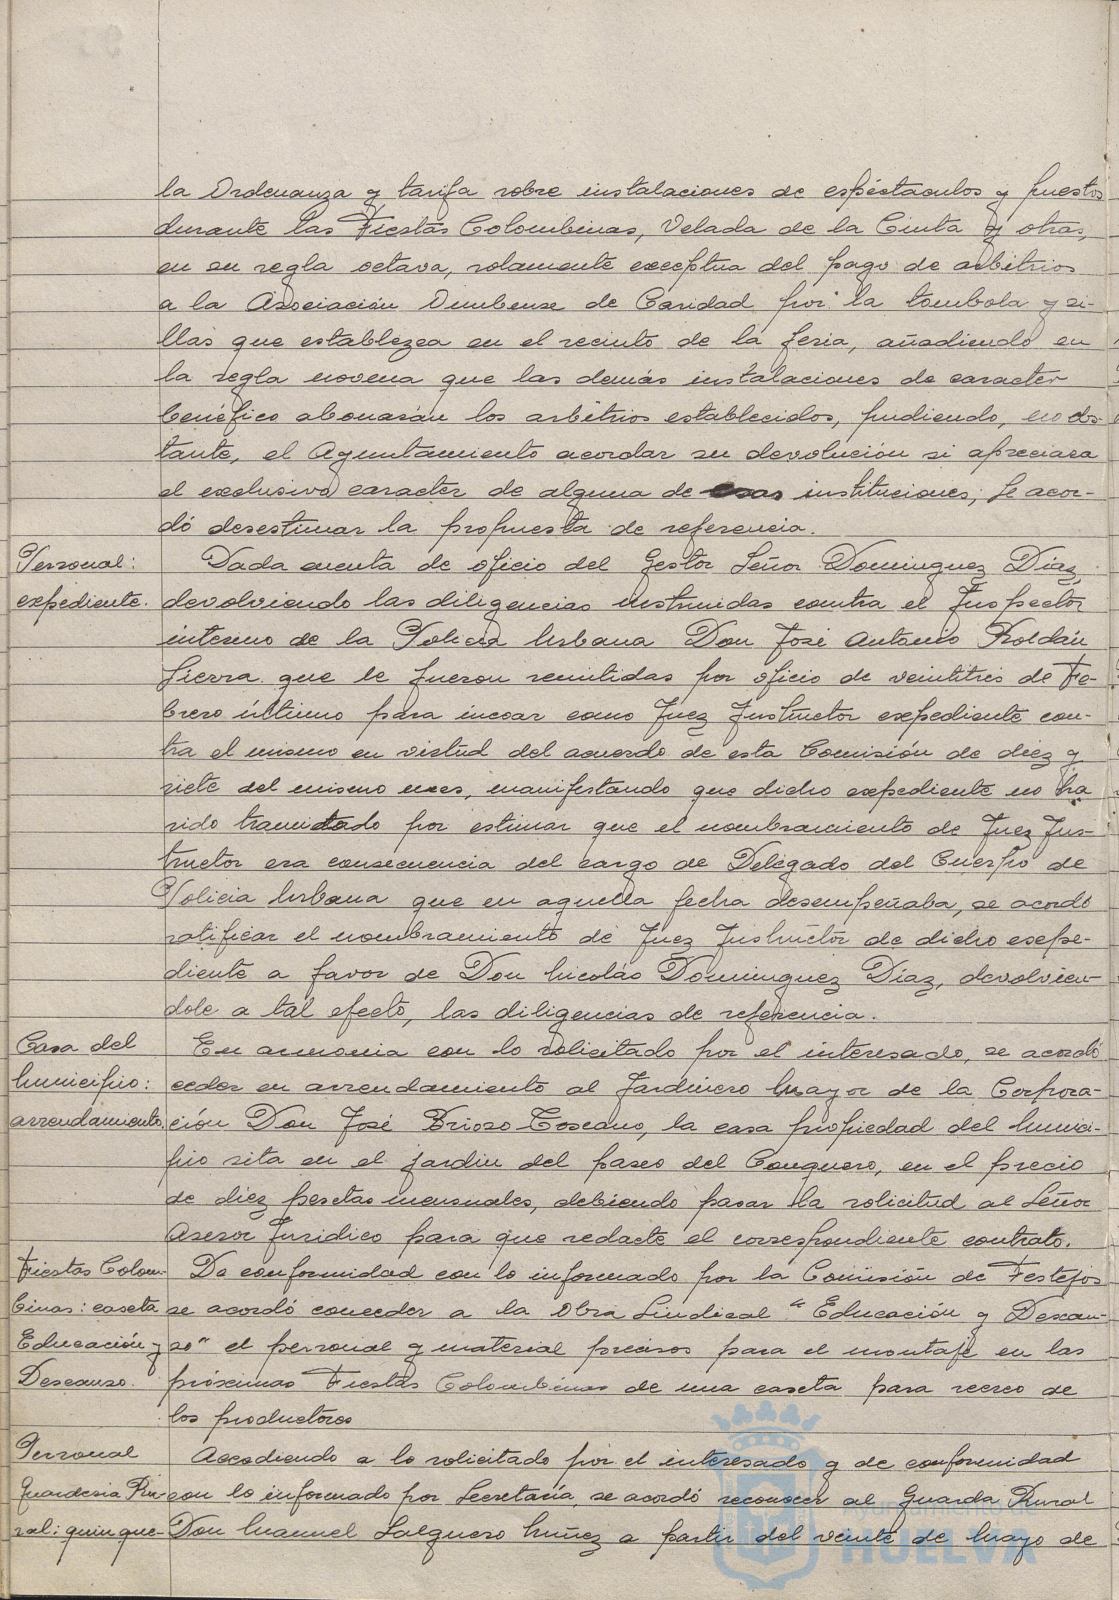 la Ordenanza y tarifa sobre instalaciones de espectaculos y puestos
durante las Fiestas Colombinas, Velada de la Cinta y otras,
en su regla octava, solamente exceptua del pago de arbitrios
a la Asociación Onubense de Caridad por la tombola y si-
llas que establezca en el recinto de la feria, añadiendo en
la regla novena que las demás instalaciones de caracter
benéfico abonarán los arbitrios establecidos, pudiendo, no obs-
tante, el Ayuntamiento acordar su devolución si apreciara
el exclusivo caracter de alguna de esas instituciones; Se acor-
dó desestimar la propuesta de referencia.
Personal:
expediente.
Dada cuenta de oficio del Gestor Señor Dominguez Díaz,
devolviendo las diligencias instruidas contra el Inspector
interino de la Policía Urbana Don José Antonio Roldán
Sierra que le fueron remitidas por oficio de veintitrés de Fe-
brero último para incoar como Juez Instructor expediente con-
tra el mismo en virtud del acuerdo de esta Comisión de diez y
siete del mismo mes, manifestando que dicho expediente no ha
sido tramitado por estimar que el nombramiento de Juez Ins-
tructor era consecuencia del cargo de Delegado del Cuerpo de
Policia Urbana que en aquella fecha desempeñaba, se acordó
ratificar el nombramiento de Juez Instructor de dicho expe-
diente a favor de Don Nicolás Dominguez Díaz, devolvien-
dole a tal efecto, las diligencias de referencia.
Casa del
Municipio:
arrendamiento.
En armonia con lo solicitado por el interesado, se acordó
ceder en arrendamiento al Jardinero Mayor de la Corpora-
ción Don José Brioso Toscano, la casa propiedad del Munici-
pio sita en el jardin del paseo del Conquero, en el precio
de diez pesetas mensuales, debiendo pasar la solicitud al Señor
Asesor Juridico para que redacte el correspondiente contrato.
Fiestas Colom-
binas: caseta
Educación y
Descanso.
De conformidad con lo informado por la Comisión de Festejos
se acordó conceder a la Obra Sindical "Educación y Descan-
so" el personal y material precisos para el montaje en las
próximas Fiestas Colombinas de una caseta para recreo de
los productores
Personal
Guarderia Ru-
ral: quinque-
Accediendo a lo solicitado por el interesado y de conformidad
con lo informado por Secretaría, se acordó reconocer al Guarda Rural
Don Manuel Salguero Núñez a partir del veinte de Mayo de
Ayuntamiento de
HUELVA